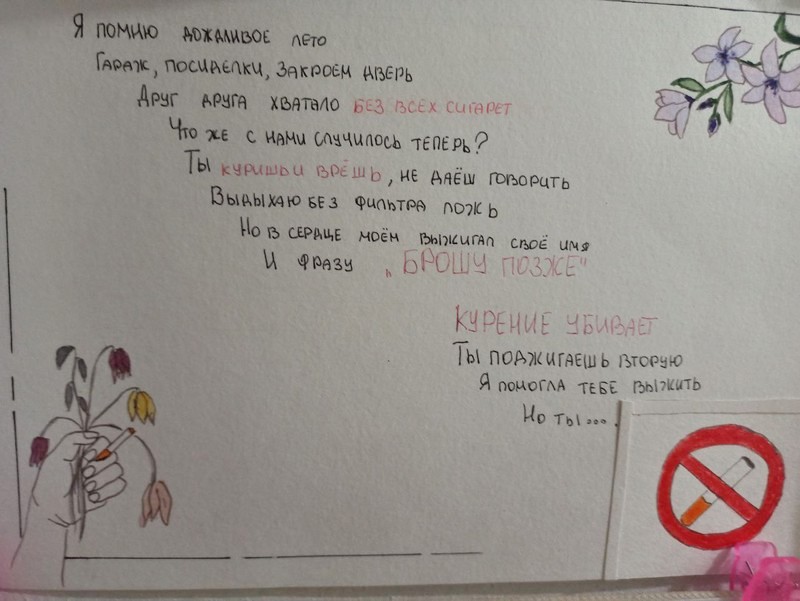 Я помню дождливое лето
Гараж, посиделки, закроем дверь
Друг друга хватало без всех сигарет
Что же с нами случилось теперь?
Ты куришь и врёшь, не даёш говорить
Выдыхаю без фильтра ложь
Но в сердце моём выжигал своё имя
И фразу „БРОШУ ПОЗЖЕ"
КУРЕНИЕ УБИВАЕТ
Ты поджигаешь вторую
Я помогла тебе выжить
Но ты....